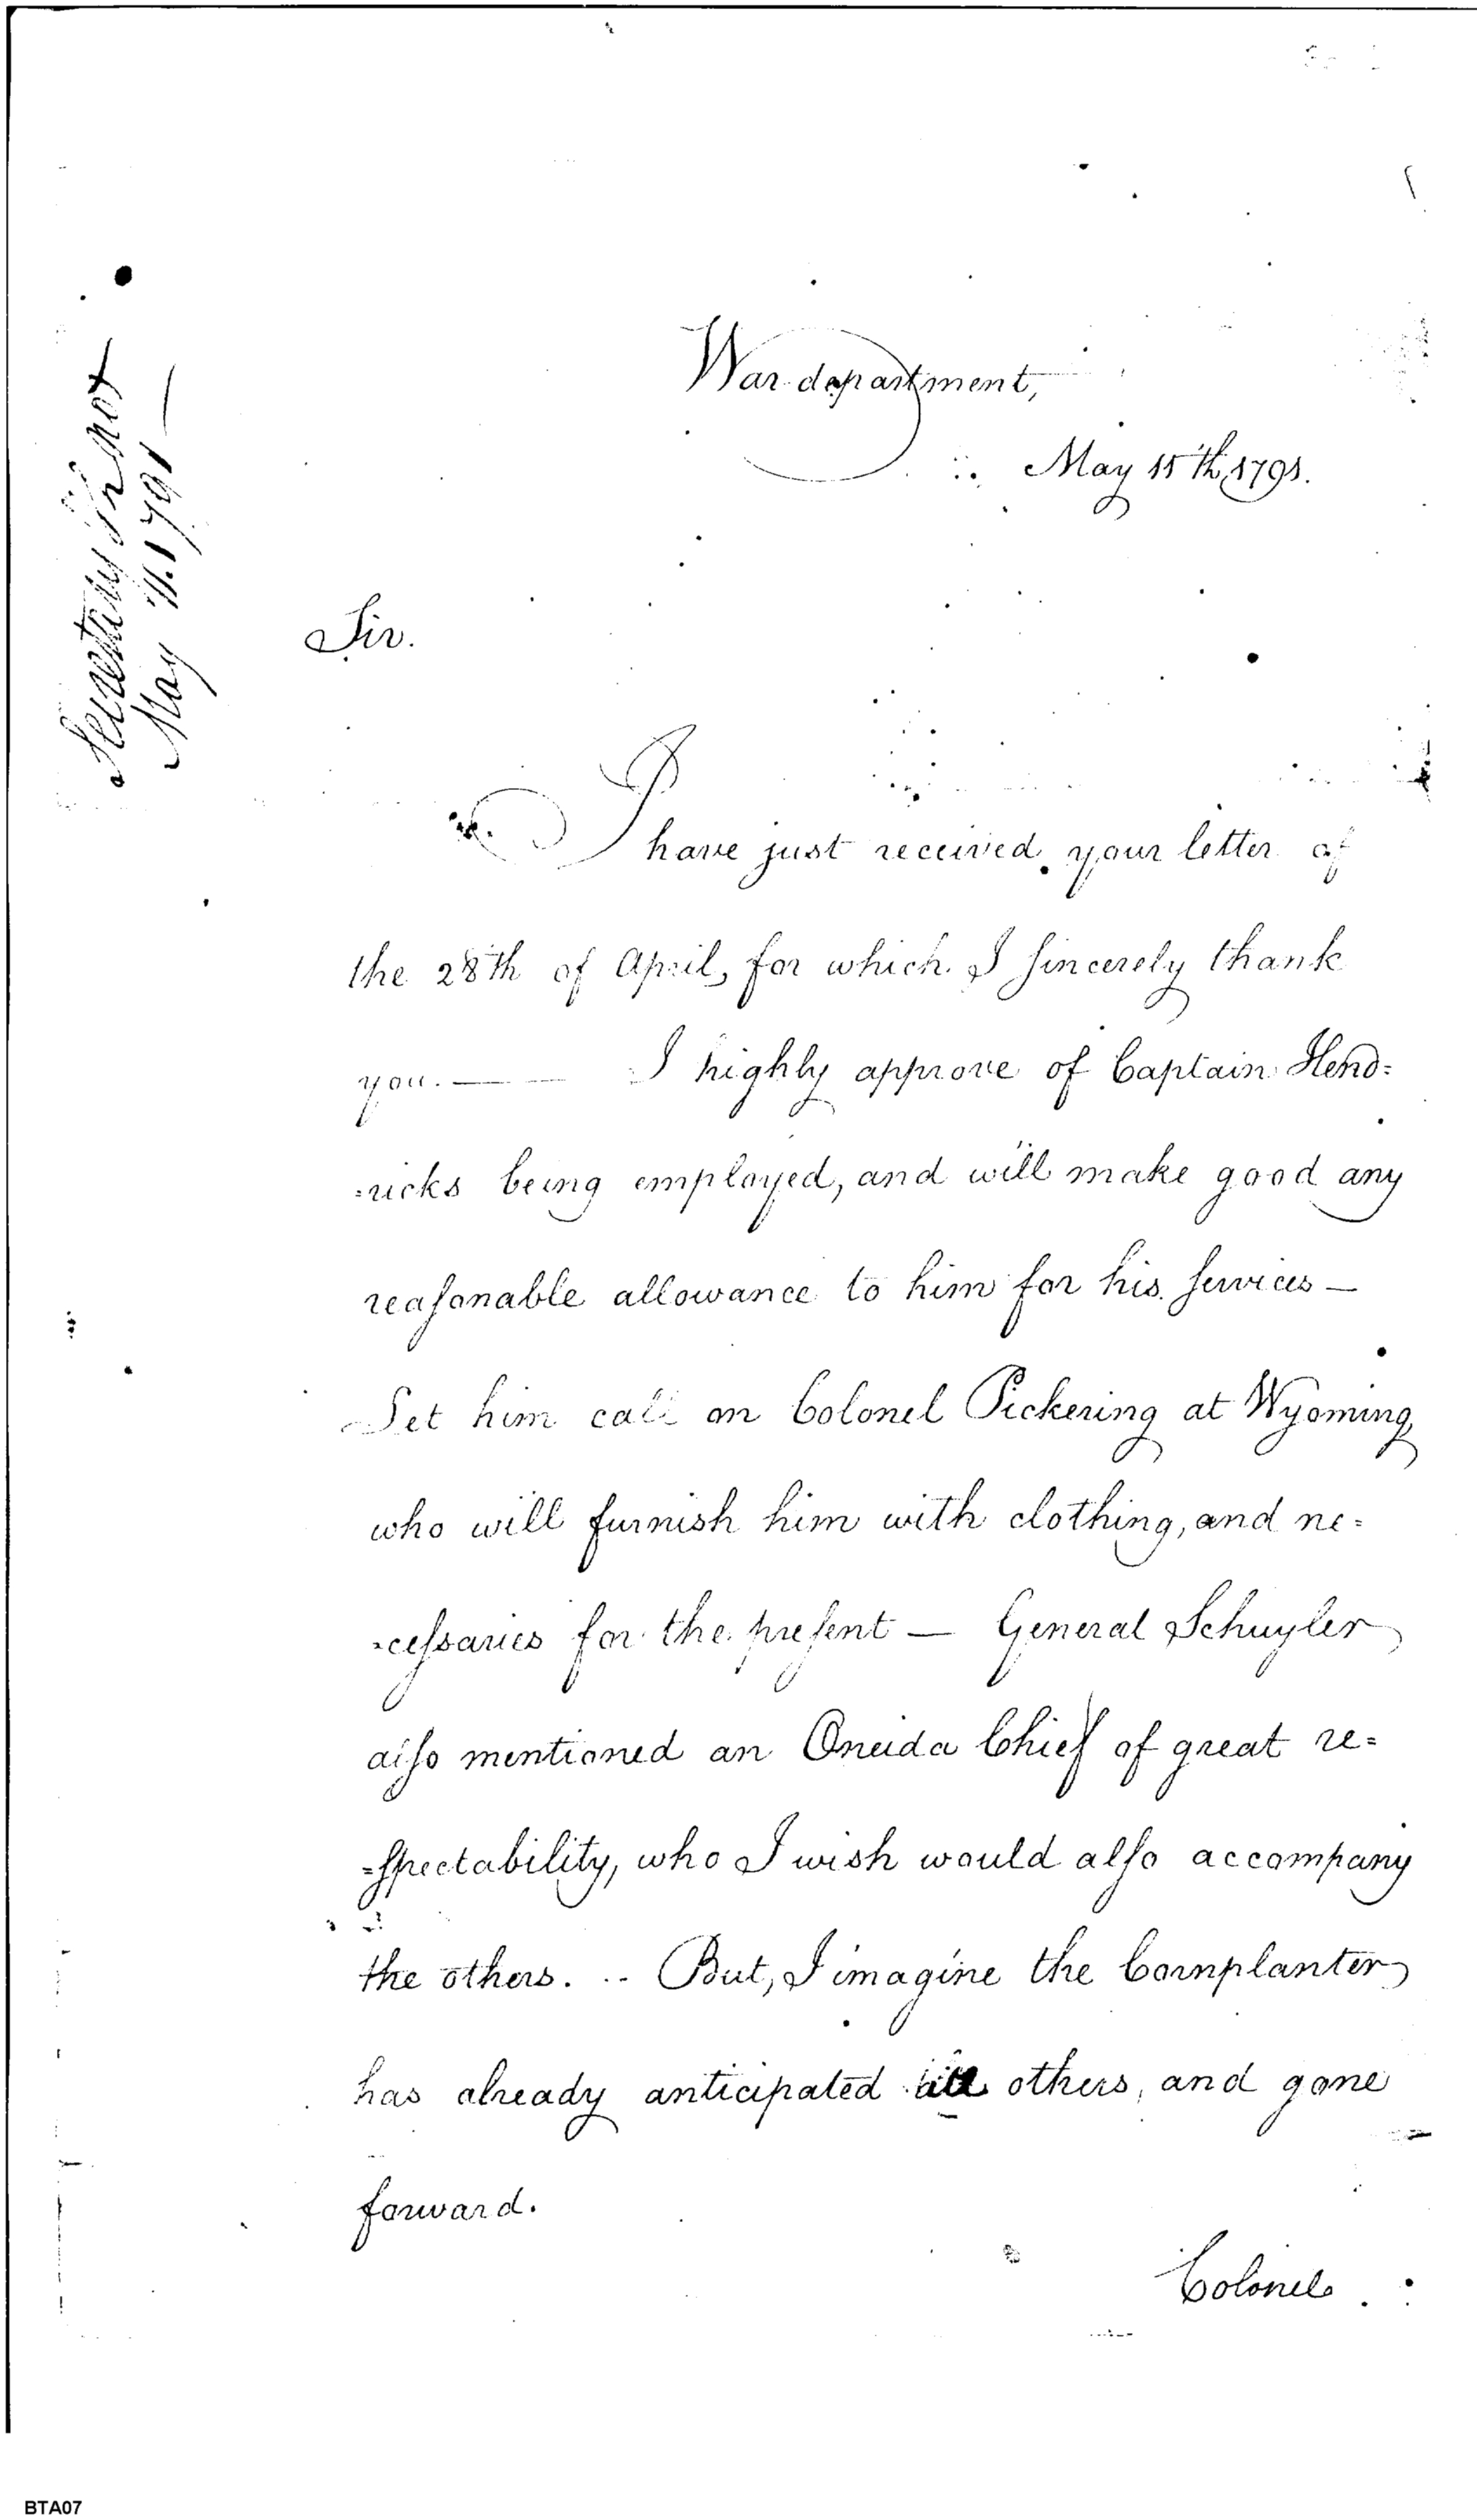 Secretary Knox
May 11. 1791 —
War department,
May 11th 1791.
Sir.
I have just received your letter of
the 28th of April, for which I sincerely thank
you. —— I highly approve of Captain Hend=
=ricks being employed, and will make good any
reasonable allowance to him for his services —
Let him call on Colonel Pickering at Wyoming,
who will furnish him with clothing, and ne=
=cessaries for the present — General Schuyler
also mentioned an Oneida Chief of great re=
=spectability, who I wish would also accompany
the others. -- But, I imagine the Cornplanter
has already anticipated all others, and gone
forward.
Colonel
BTA07